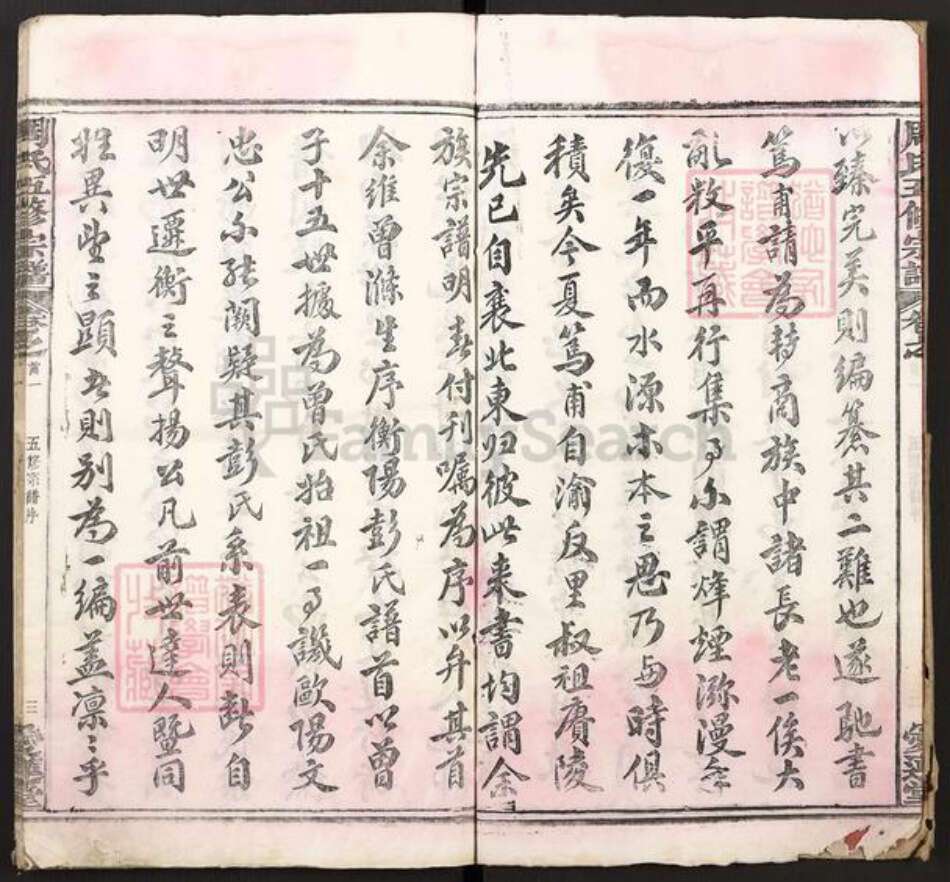 以臻完美則編纂其二難也遂馳書
篤甫請為轉商族中諸長老一俟大
亂敉平再行集事尔謂烽煙瀰漫
復一年而水源木本之思乃与時俱
積矣今夏篤甫自渝反里叔祖賡陵
先已自襄北東归彼此来書均謂余
族宗譜明春付刊嘱為序以弁其首
余維曾滌生序衡陽彭氏譜首以曾
子十五世據為曾氏始祖一事譏歐陽文
忠公尔能闕疑其彭氏系表則断自
明世遷衡之聲揚公凡前世達人暨同
姓異望之顯者則別為一編盖凛〻乎
周氏五修宗譜
卷之首一
五修宗譜序
三
愛蓮堂
周氏五修宗譜
卷之
愛蓮堂
FamilySearch